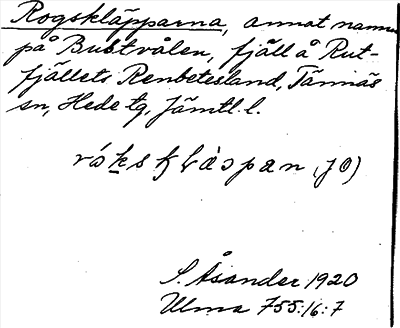 Rogskläpparna, annat namn
på Bustvålen, fjäll å Rut-
fjällets Renbetesland, Tännäs
sn, Hede tg, Jämtl. l.
(JO)
S. Åsander 1920
Ulma 755:16:7